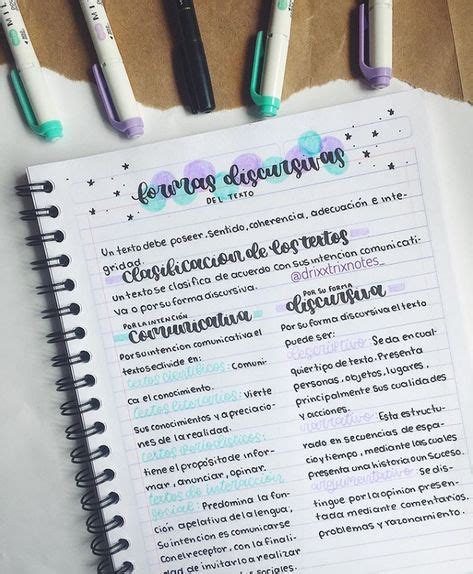 formas discursivas
DEL TEXTO
Un texto debe poseer, sentido, coherencia, adecuación e inte-
gridad.
Clasificacion de los textos
un texto se clasifica de acuerdo con sus intención comunicati-
va o por su forma discursiva.
@drixxtrixnotes_
POR LA INTENCIÓN
comunicativa
Por su intención comunicativa el
texto se divide en:
textos científicos: Comuni-
ca el conocimiento.
textos literarios: Vierte
sus conocimientos y apreciacio-
nes de la realidad.
textos periodísticos:
tiene el propósito de infor-
mar, anunciar, opinar.
textos de interacción
social: Predomina la fun-
ción apelativa de la lengua,
Su intención es comunicarse
con el receptor, con la finali-
dad de invitarlo a realizar
sociales.
POR SU FORMA
discursiva
Por su forma discursiva el texto
puede ser:
descriptivo: Se da en cual-
quier tipo de texto. Presenta
personas, objetos, lugares,
principalmente sus cualidades
y acciones.
narrativo: Esta estructu-
rado en secuencias de espa-
cio y tiempo, mediante las cuales
presenta una historia o un suceso.
argumentativo: Se dis-
tingue por la opinión presen-
tada mediante comentarios,
problemas y razonamiento.